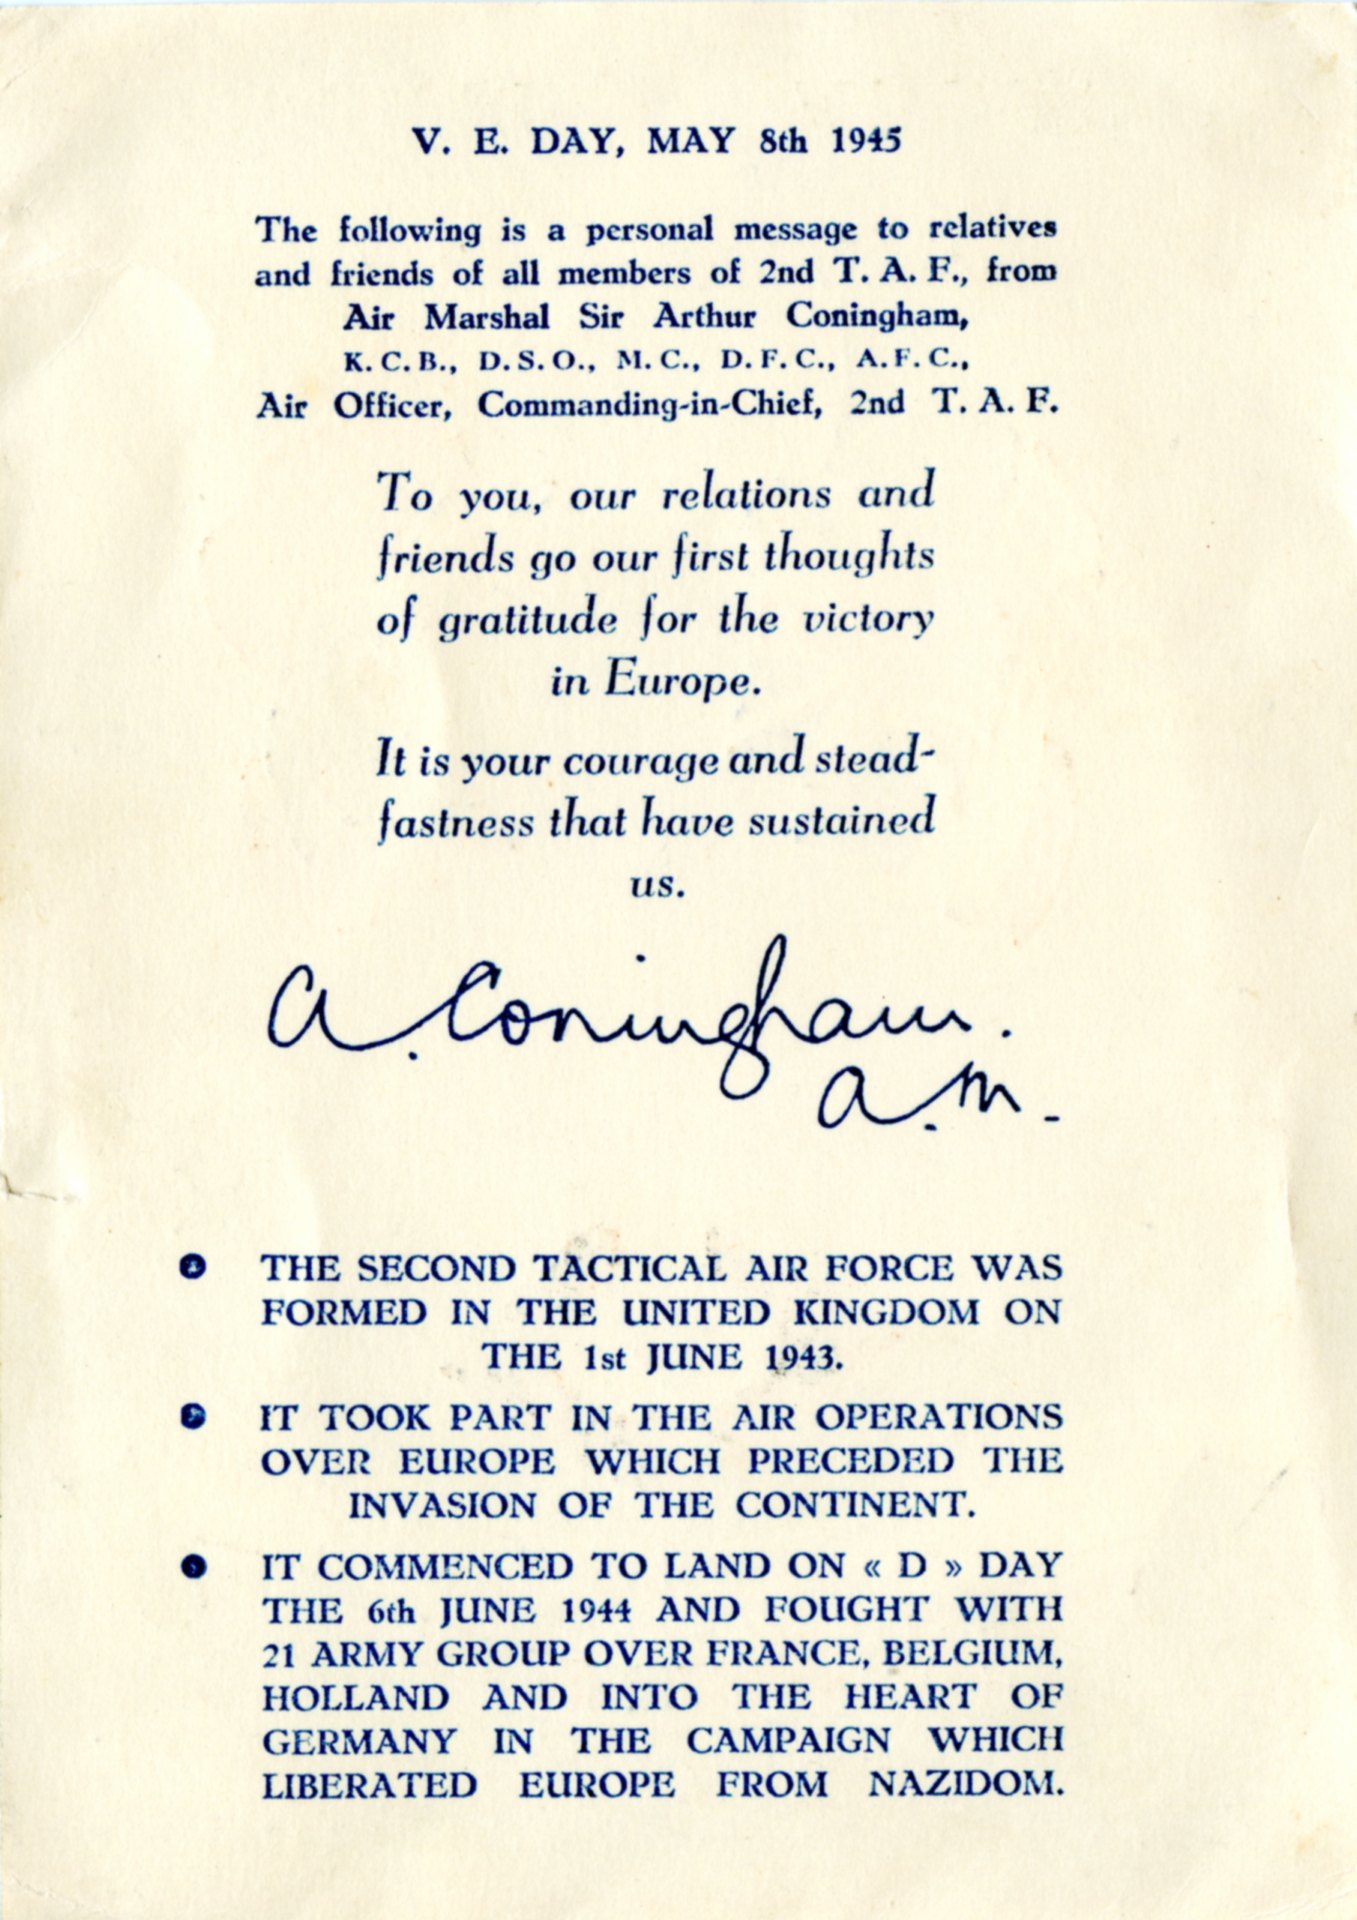 V. E. DAY, MAY 8th 1945
The following is a personal message to relatives
and friends of all members of 2nd T. A. F., from
Air Marshal Sir Arthur Coningham,
K. C. B., D. S. O., M. C., D. F. C., A. F. C.,
Air Officer, Commanding-in-Chief, 2nd T. A. F.
To you, our relations and
friends go our first thoughts
of gratitude for the victory
in Europe.
It is your courage and stead-
fastness that have sustained
us.
A. Coningham.
A.M.
• THE SECOND TACTICAL AIR FORCE WAS
FORMED IN THE UNITED KINGDOM ON
THE 1st JUNE 1943.
• IT TOOK PART IN THE AIR OPERATIONS
OVER EUROPE WHICH PRECEDED THE
INVASION OF THE CONTINENT.
• IT COMMENCED TO LAND ON « D » DAY
THE 6th JUNE 1944 AND FOUGHT WITH
21 ARMY GROUP OVER FRANCE, BELGIUM,
HOLLAND AND INTO THE HEART OF
GERMANY IN THE CAMPAIGN WHICH
LIBERATED EUROPE FROM NAZIDOM.